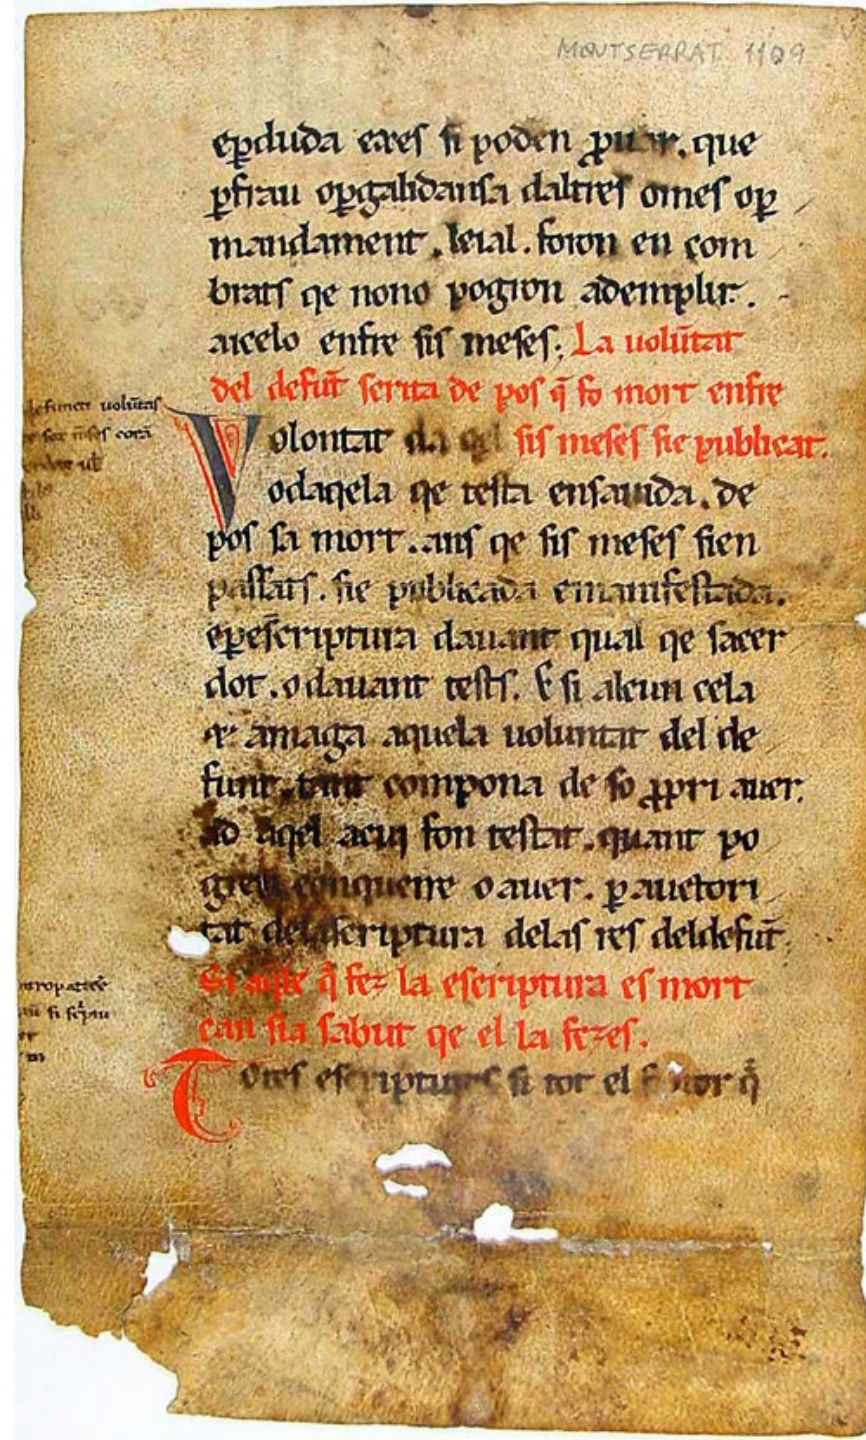 MONTSERRAT 1109
eꝑduda eres si poden ꝓuar. que
ꝑfrau oꝑgalidansa daltres omes oꝑ
mandament. leial. foron en com
brats qe nono pogron ademplir.
aicelo enfre sis meses. La uolūtat
del defūt scrita de pos q̄ fo mort enfre
Volontat sis meses sie publicat.
odaqela qe testa ensauida. de
pos sa mort. ans qe sis meses sien
passats. sie publicada emanifestada.
eꝑescriptura dauant qual qe sacer
dot. o dauant tests. E si alcun cela
amaga aquela uoluntat del de
funt. tant compona de so ꝓpri auer.
ad aqel acui fon testat. quant po
conquerre o auer. ꝑ auctori
tat delascriptura delas res deldefūt.
Si aq̄le q̄ fez la escriptura es mort
can sia sabut qe el la fezes.
Totes escriptures si tot el q̄
defuncti uolūtas